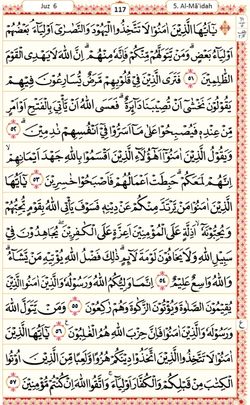 Juz 6
117
5. Al-Mâ'idah
يٰٓاَيُّهَا الَّذِيْنَ اٰمَنُوْا لَا تَتَّخِذُوا الْيَهُوْدَ وَالنَّصٰرٰٓى اَوْلِيَآءَ ۘ بَعْضُهُمْ
اَوْلِيَآءُ بَعْضٍ ۗ وَمَنْ يَّتَوَلَّهُمْ مِّنْكُمْ فَاِنَّهٗ مِنْهُمْ ۗ اِنَّ اللّٰهَ لَا يَهْدِى الْقَوْمَ
الظّٰلِمِيْنَ ٥١ فَتَرَى الَّذِيْنَ فِيْ قُلُوْبِهِمْ مَّرَضٌ يُّسَارِعُوْنَ فِيْهِمْ
يَقُوْلُوْنَ نَخْشٰٓى اَنْ تُصِيْبَنَا دَاۤىِٕرَةٌ ۗ فَعَسَى اللّٰهُ اَنْ يَّأْتِيَ بِالْفَتْحِ اَوْ اَمْرٍ
مِّنْ عِنْدِهٖ فَيُصْبِحُوْا عَلٰى مَآ اَسَرُّوْا فِيْٓ اَنْفُسِهِمْ نٰدِمِيْنَ ۗ ٥٢
وَيَقُوْلُ الَّذِيْنَ اٰمَنُوْٓا اَهٰٓؤُلَآءِ الَّذِيْنَ اَقْسَمُوْا بِاللّٰهِ جَهْدَ اَيْمَانِهِمْ ۙ
اِنَّهُمْ لَمَعَكُمْ ۗ حَبِطَتْ اَعْمَالُهُمْ فَاَصْبَحُوْا خٰسِرِيْنَ ٥٣ يٰٓاَيُّهَا
الَّذِيْنَ اٰمَنُوْا مَنْ يَّرْتَدَّ مِنْكُمْ عَنْ دِيْنِهٖ فَسَوْفَ يَأْتِى اللّٰهُ بِقَوْمٍ يُّحِبُّهُمْ
وَيُحِبُّوْنَهٗٓ ۙ اَذِلَّةٍ عَلَى الْمُؤْمِنِيْنَ اَعِزَّةٍ عَلَى الْكٰفِرِيْنَ ۖ يُجَاهِدُوْنَ فِيْ
سَبِيْلِ اللّٰهِ وَلَا يَخَافُوْنَ لَوْمَةَ لَآىِٕمٍ ۗ ذٰلِكَ فَضْلُ اللّٰهِ يُؤْتِيْهِ مَنْ يَّشَآءُ ۗ
وَاللّٰهُ وَاسِعٌ عَلِيْمٌ ٥٤ اِنَّمَا وَلِيُّكُمُ اللّٰهُ وَرَسُوْلُهٗ وَالَّذِيْنَ اٰمَنُوا الَّذِيْنَ
يُقِيْمُوْنَ الصَّلٰوةَ وَيُؤْتُوْنَ الزَّكٰوةَ وَهُمْ رٰكِعُوْنَ ٥٥ وَمَنْ يَّتَوَلَّ اللّٰهَ
وَرَسُوْلَهٗ وَالَّذِيْنَ اٰمَنُوْا فَاِنَّ حِزْبَ اللّٰهِ هُمُ الْغٰلِبُوْنَ ٥٦ يٰٓاَيُّهَا الَّذِيْنَ
اٰمَنُوْا لَا تَتَّخِذُوا الَّذِيْنَ اتَّخَذُوْا دِيْنَكُمْ هُزُوًا وَّلَعِبًا مِّنَ الَّذِيْنَ اُوْتُوا
الْكِتٰبَ مِنْ قَبْلِكُمْ وَالْكُفَّارَ اَوْلِيَآءَ ۚ وَاتَّقُوا اللّٰهَ اِنْ كُنْتُمْ مُّؤْمِنِيْنَ ٥٧